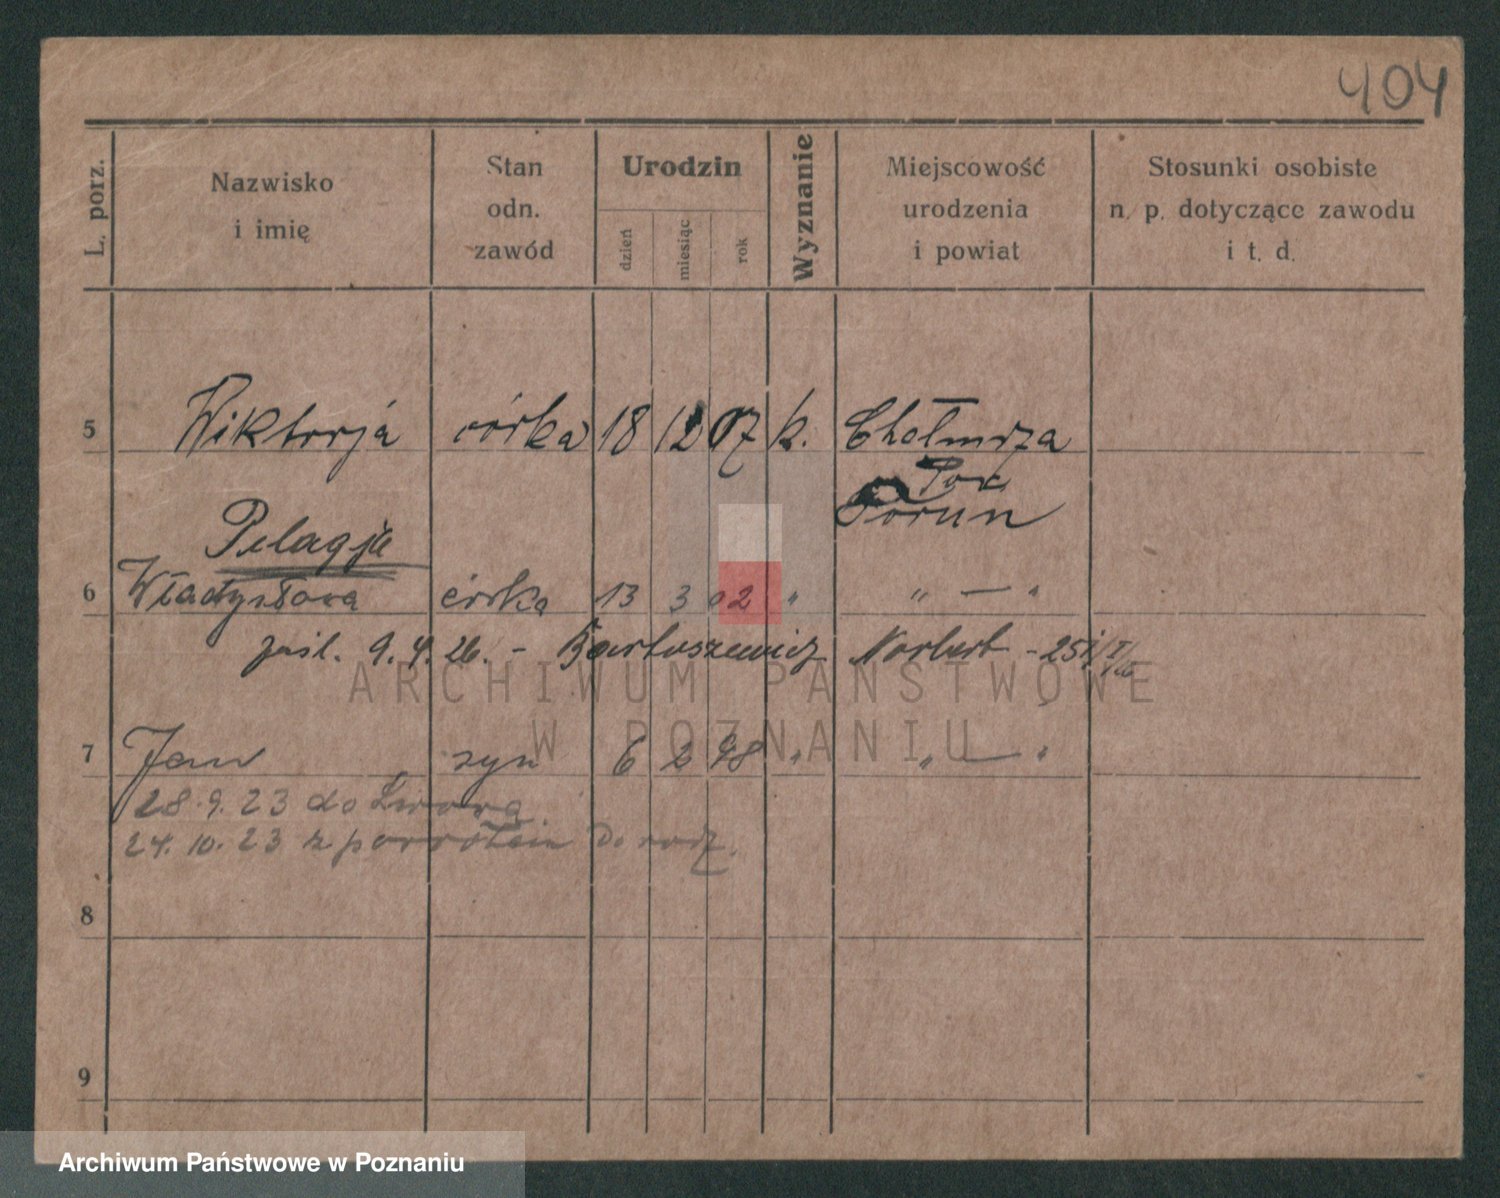 404
L. porz.
Nazwisko i imię
Stan odn. zawód
Urodzin
dzień
miesiąc
rok
Wyznanie
Miejscowość urodzenia i powiat
Stosunki osobiste n. p. dotyczące zawodu i t. d.
5 Wiktorja córka 18 12 07 k. Chełmrza
Toruń
Pelagja
6 Władysława córka 13 3 02 " " — "
zaśl. 9.4.26. - Bartuszewicz Norbert - 25/
7 Jan syn 6 2 98 " " — "
28.9.23 do Lwowa
24.10.23 z powrotem do rodz.
8
9
ARCHIWUM PAŃSTWOWE
W POZNANIU
Archiwum Państwowe w Poznaniu